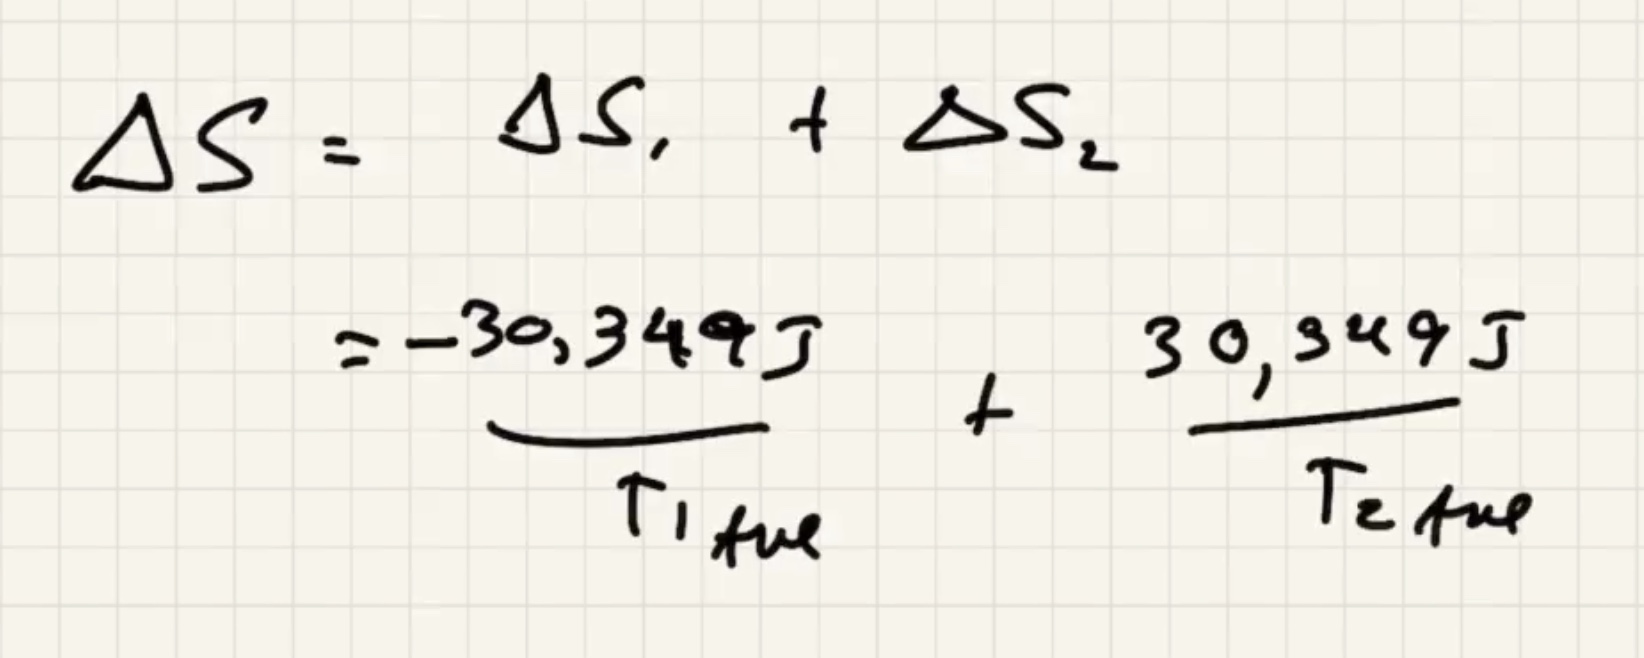 ΔS = ΔS₁ + ΔS₂
= -30,349J / T₁ Ave + 30,349J / T₂ Ave